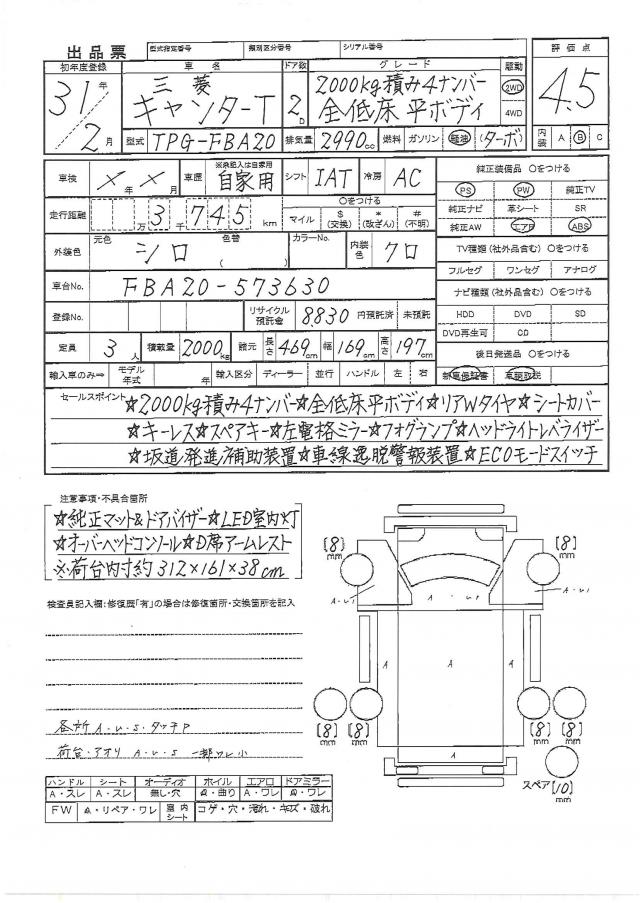 出品票 型式指定番号 類別区分番号 シリアル番号
初年度登録 車名 ドア数 グレード 駆動 評価点
31年 三菱 2000kg積み4ナンバー 2WD
2月 キャンターT 2D 全低床 平ボディ 4WD 4.5
型式 TPG-FBA20 排気量 2990cc 燃料 ガソリン 軽油 (ターボ) 内装 A B C
車検 ×年×月 車歴 ※未記入は自家用 自家用 シフト IAT 冷房 AC 純正装備品 〇をつける
PS PW 純正TV
走行距離 万3千745km 〇をつける マイル $(交換) *(改ざん) #(不明) 純正ナビ 革シート SR
純正AW エアB ABS
外装色 元色 シロ 色替( ) カラーNo. 内装色 クロ TV種類(社外品含む)〇をつける
フルセグ ワンセグ アナログ
車台No. FBA20-573630 ナビ種類(社外品含む)〇をつける
登録No. リサイクル預託金 8,830 円預託済 未預託 HDD DVD SD
DVD再生可 CD
定員 3人 積載量 2000kg 諸元 長さ 469cm 幅 169cm 高さ 197cm 後日発送品 〇をつける
輸入車のみ⇒ モデル年式 年 輸入区分 ディーラー 並行 ハンドル 左 右 新車保証書 車輌取説
セールスポイント ☆2000kg積み4ナンバー☆全低床平ボディ☆リアWタイヤ☆シートカバー
☆キーレス☆スペアキー☆左電格ミラー☆フォグランプ☆ヘッドライトレベライザー
☆坂道発進補助装置☆車線逸脱警報装置☆ECOモードスイッチ
注意事項・不具合箇所
☆純正マット&ドアバイザー☆LED室内灯
☆オーバーヘッドコンソール☆D席アームレスト
※荷台内寸約312×161×38cm
検査員記入欄:修復歴「有」の場合は修復箇所・交換箇所を記入
各所 A・U・S・タッチP
荷台・アオリ A・U・S 一部ワレ小
ハンドル シート オーディオ ホイル エアロ ドアミラー
A・スレ A・スレ 無し・穴 A・曲り A・ワレ A・ワレ
FW A・リペア・ワレ 室内シート コゲ・穴・汚れ・キズ・破れ
[8]mm [8]mm
A・U1 A・U1
A A A
[8]mm [8]mm [8]mm [8]mm
スペア[10]mm